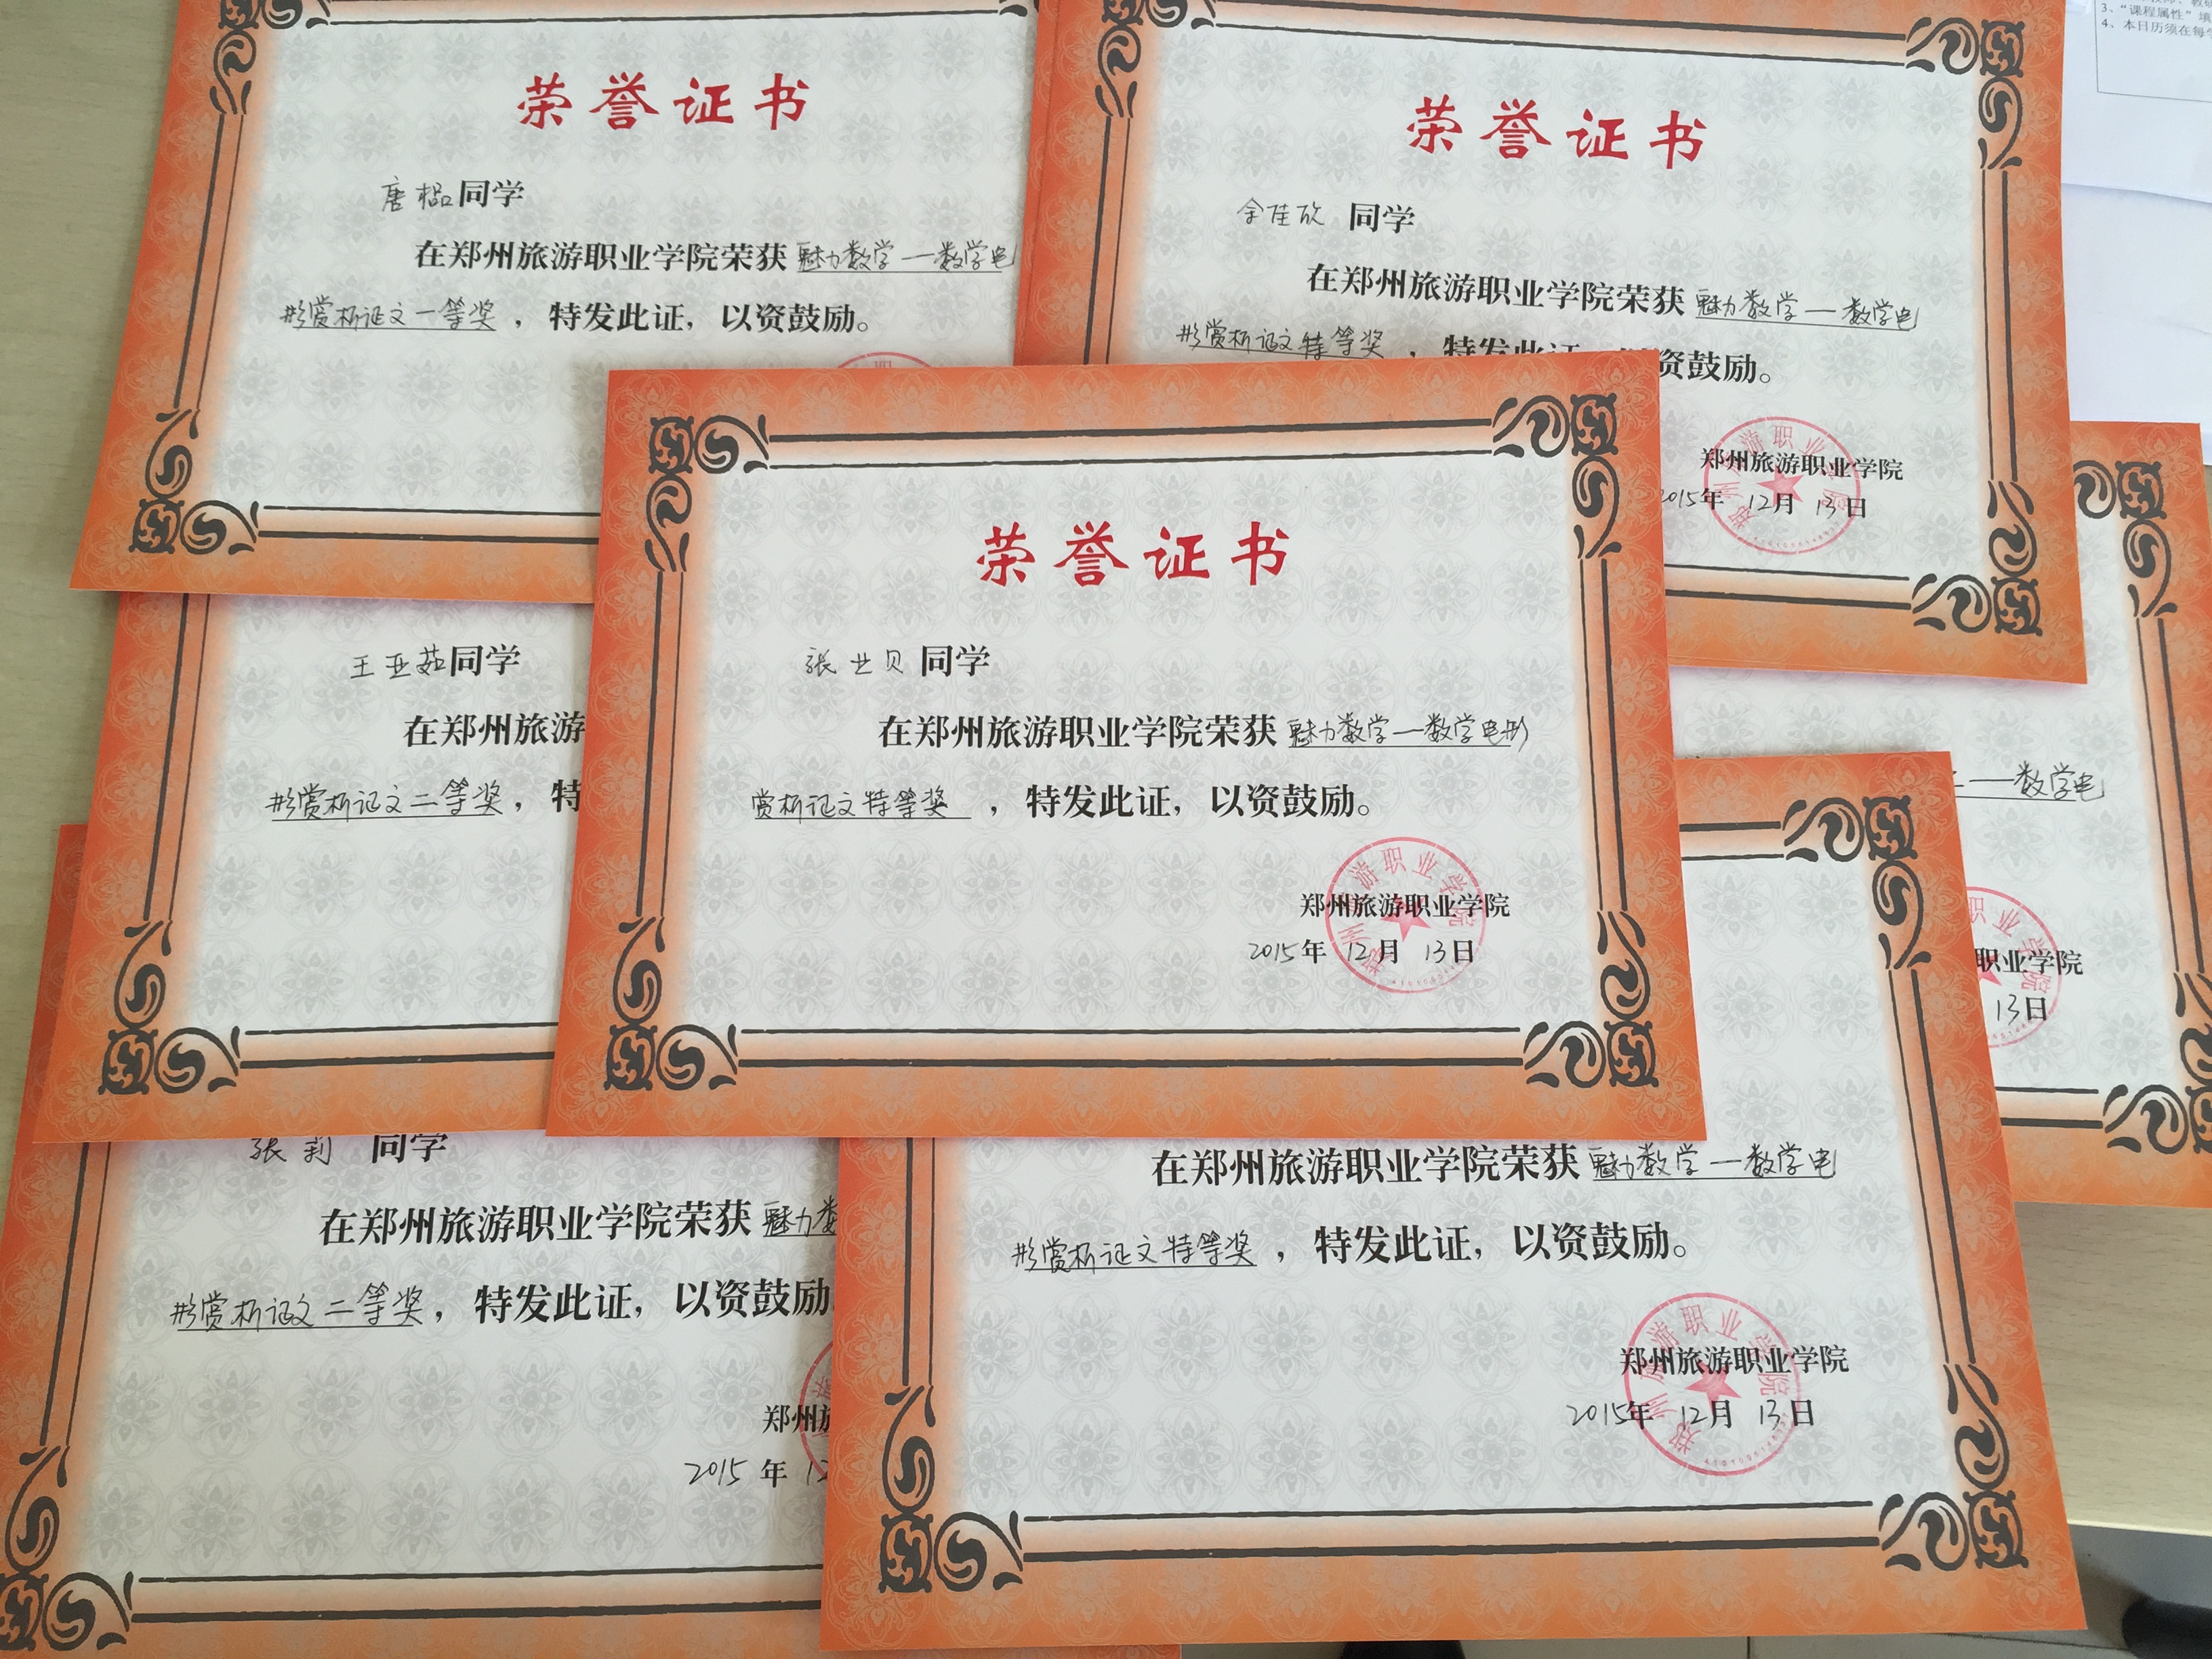 荣誉证书
唐榀同学
在郑州旅游职业学院荣获 魅力数学—数学电
影赏析论文一等奖 ，特发此证，以资鼓励。
荣誉证书
余佳欣 同学
在郑州旅游职业学院荣获 魅力数学—数学电
影赏析论文特等奖 ，特发此证，以资鼓励。
郑州旅游职业学院
2015年 12月 13日
3、“课程属性”填
4、本日历须在每学
王亚茹同学
在郑州旅游
影赏析论文二等奖，特
荣誉证书
张世贝 同学
在郑州旅游职业学院荣获 魅力数学—数学电影
赏析论文特等奖 ，特发此证，以资鼓励。
郑州旅游职业学院
2015年 12月 13日
—数学电
职业学院
13日
张莉 同学
在郑州旅游职业学院荣获 魅力数
影赏析论文二等奖，特发此证，以资鼓励
郑州旅
2015年 12
在郑州旅游职业学院荣获 魅力数学—数学电
影赏析论文特等奖 ，特发此证，以资鼓励。
郑州旅游职业学院
2015年 12月 13日